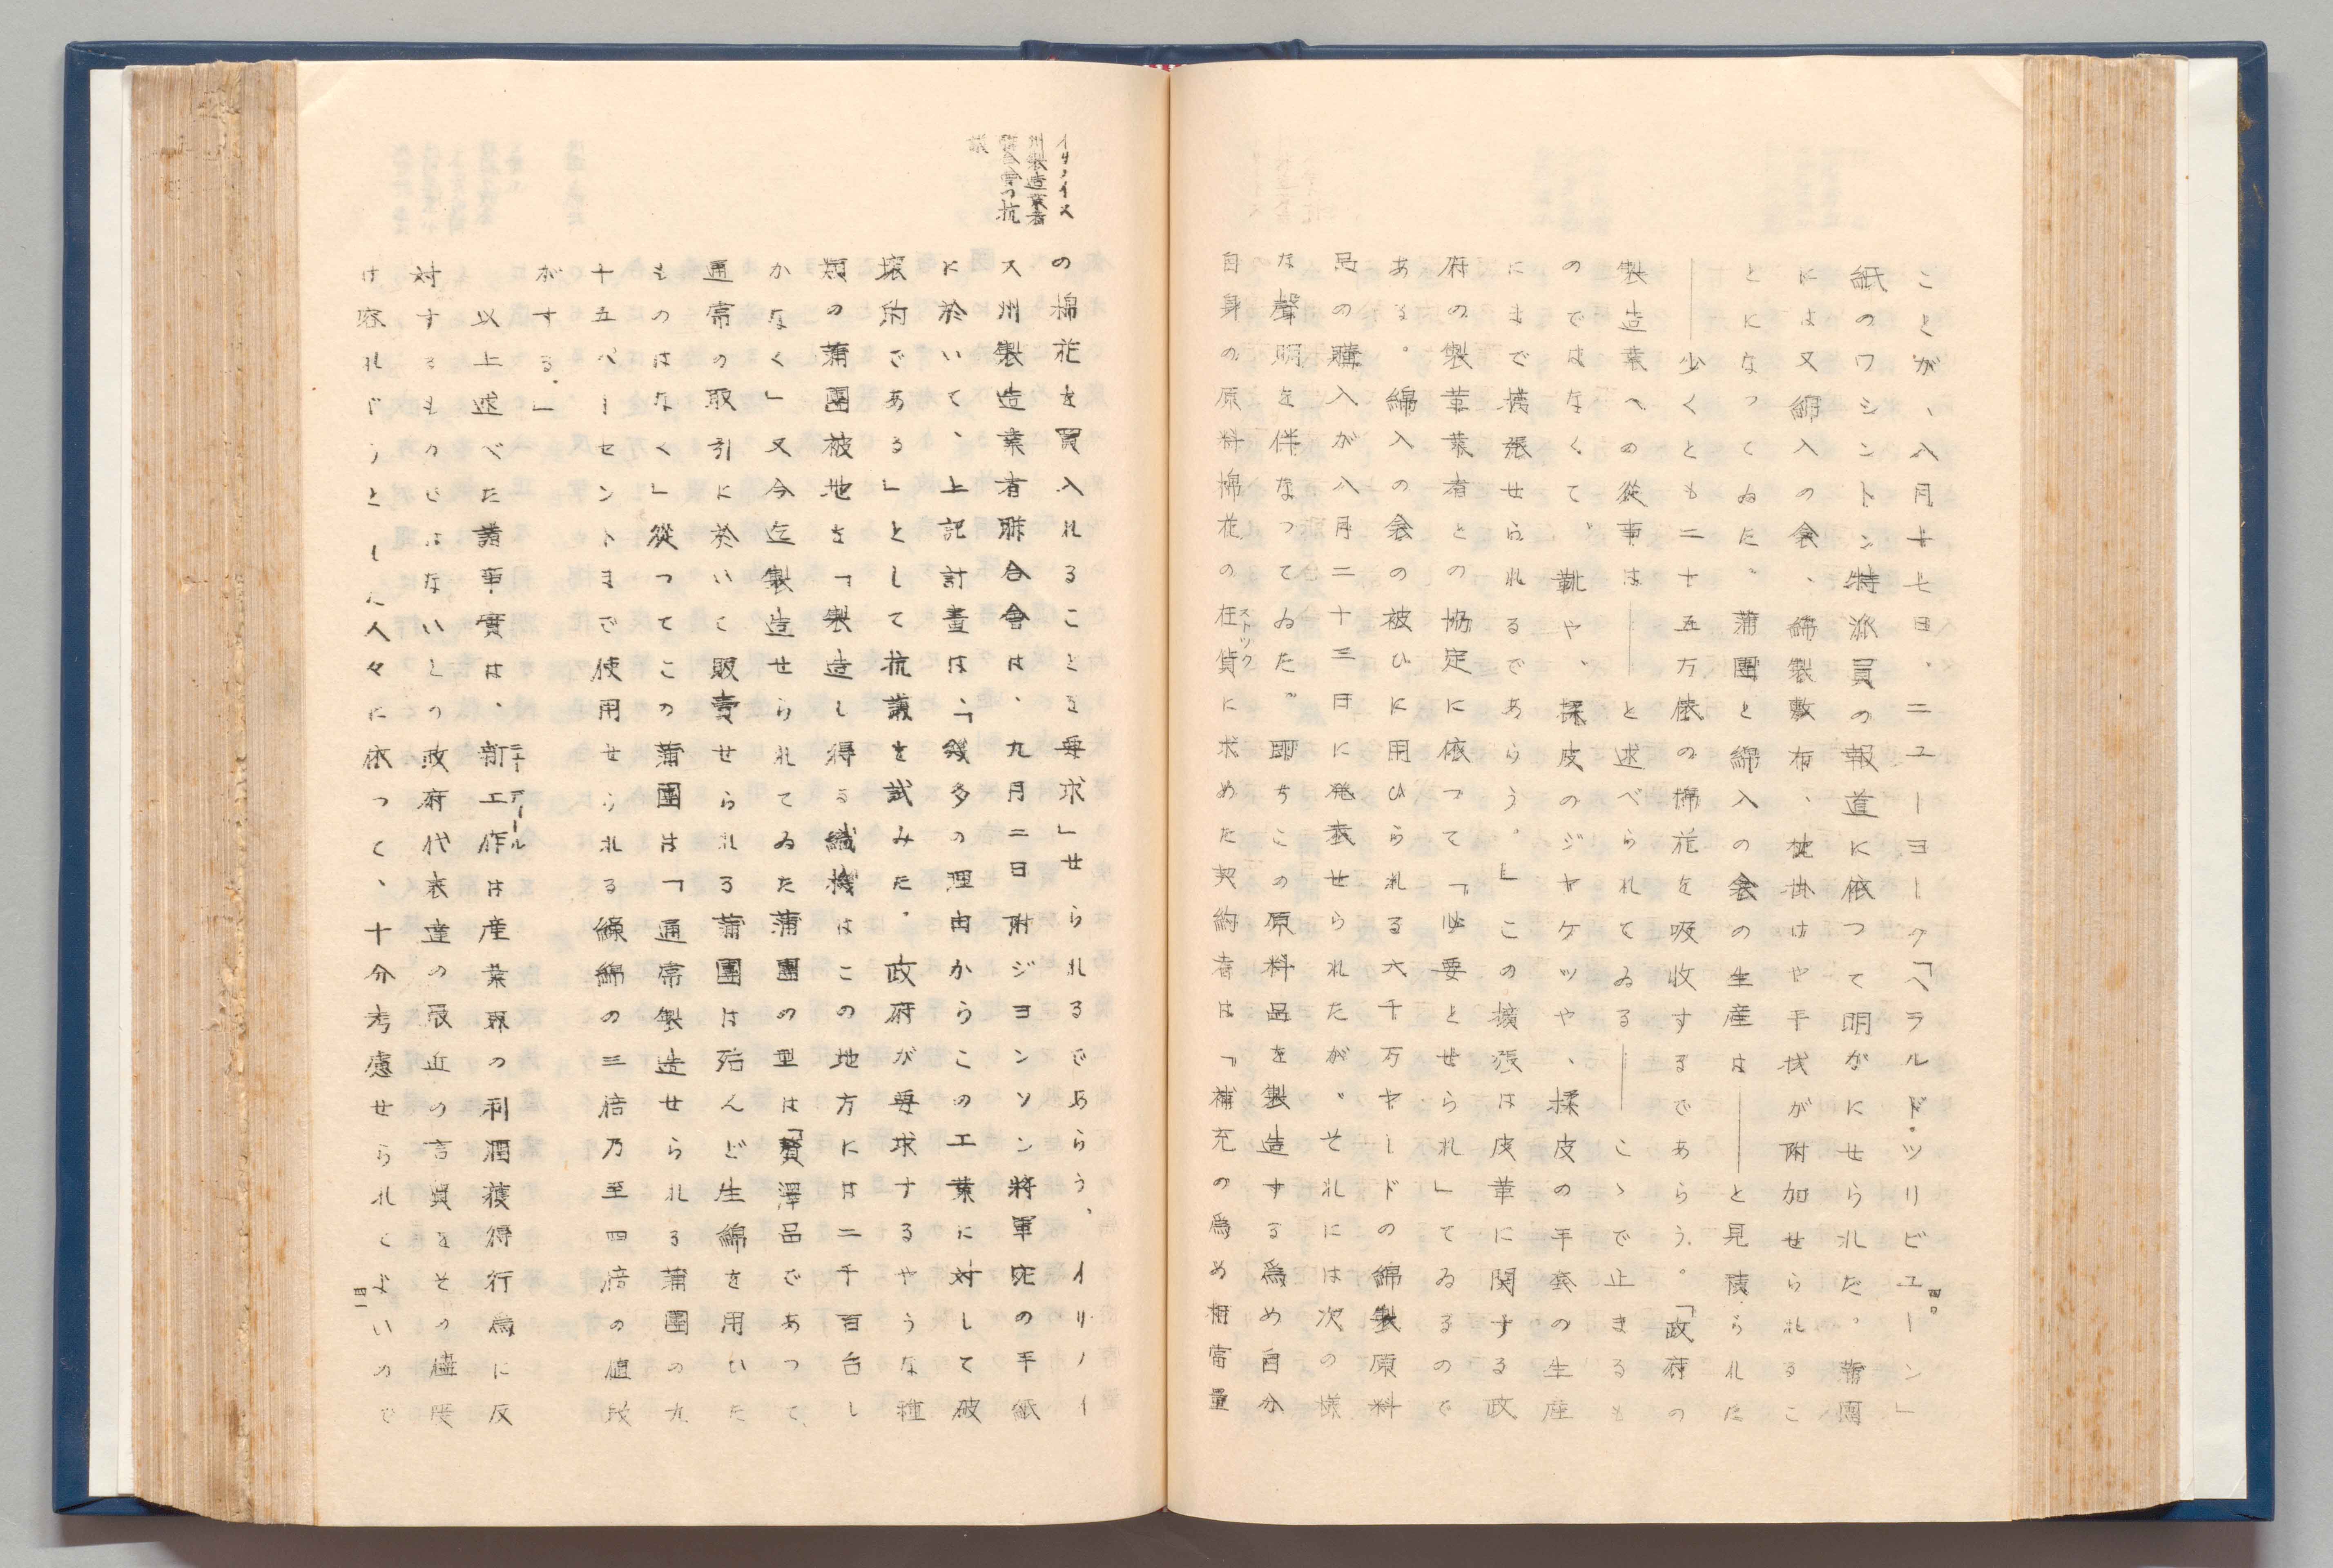 ことが、八月十七日、ニユーヨーク「ヘラルド・ツリビユーン」
紙のワシントン特派員の報道に依つて明かにせられた。蒲團
には又綿入の衾、綿製敷布、枕掛けや手拭が附加せられるこ
とになつてゐた。蒲團と綿入の衾の生産は――と見積られた
――少くとも二十五万俵の棉花を吸收するであらう。「政府の
製造業への從事は――と述べられてゐる――こゝで止まるも
のではなくて、靴や、揉皮のジヤケツや、揉皮の手套の生産
にまで擴張せられるであらう。」この擴張は皮革に関する政
府の製革業者との協定に依つて「必要とせられ」てゐるので
ある。綿入の衾の被ひに用ひられる六千万ヤードの綿製原料
品の購入が八月二十三日に発表せられたが、それには次の樣
な聲明を伴なつてゐた。即ちこの原料品を製造する爲め自分
自身の原料棉花の在貨に求めた契約者は「補充の爲め相當量
ストツク
四〇
イリノイス
州製造業者
聯合會の抗
議
の棉花を買入れることを要求」せられるであらう、イリノイ
ス州製造業者聯合會は、九月二日附ジヨンソン將軍宛の手紙
に於いて、上記計畫は、「幾多の理由からこの工業に対して破
壞的である」として抗議を試みた。政府が要求するやうな種
類の蒲團被地を「製造し得る織機はこの地方には二千百台し
かなく」又今迄製造せられてゐた蒲團の型は「贅澤品であつて、
通常の取引に於いて販賣せられる蒲團は殆んど生綿を用ひた
ものはなく」從つてこの蒲團は「通常製造せられる蒲團の九
十五パーセントまで使用せられる繰綿の三倍乃至四倍の値段
がする。」
以上述べた諸事實は、新工作は産業界の利潤獲得行爲に反
ニューディール
対するものではないとの政府代表達の最近の言質をその儘受
け容れようとした人々に依つて、十分考慮せられてよいので
四一